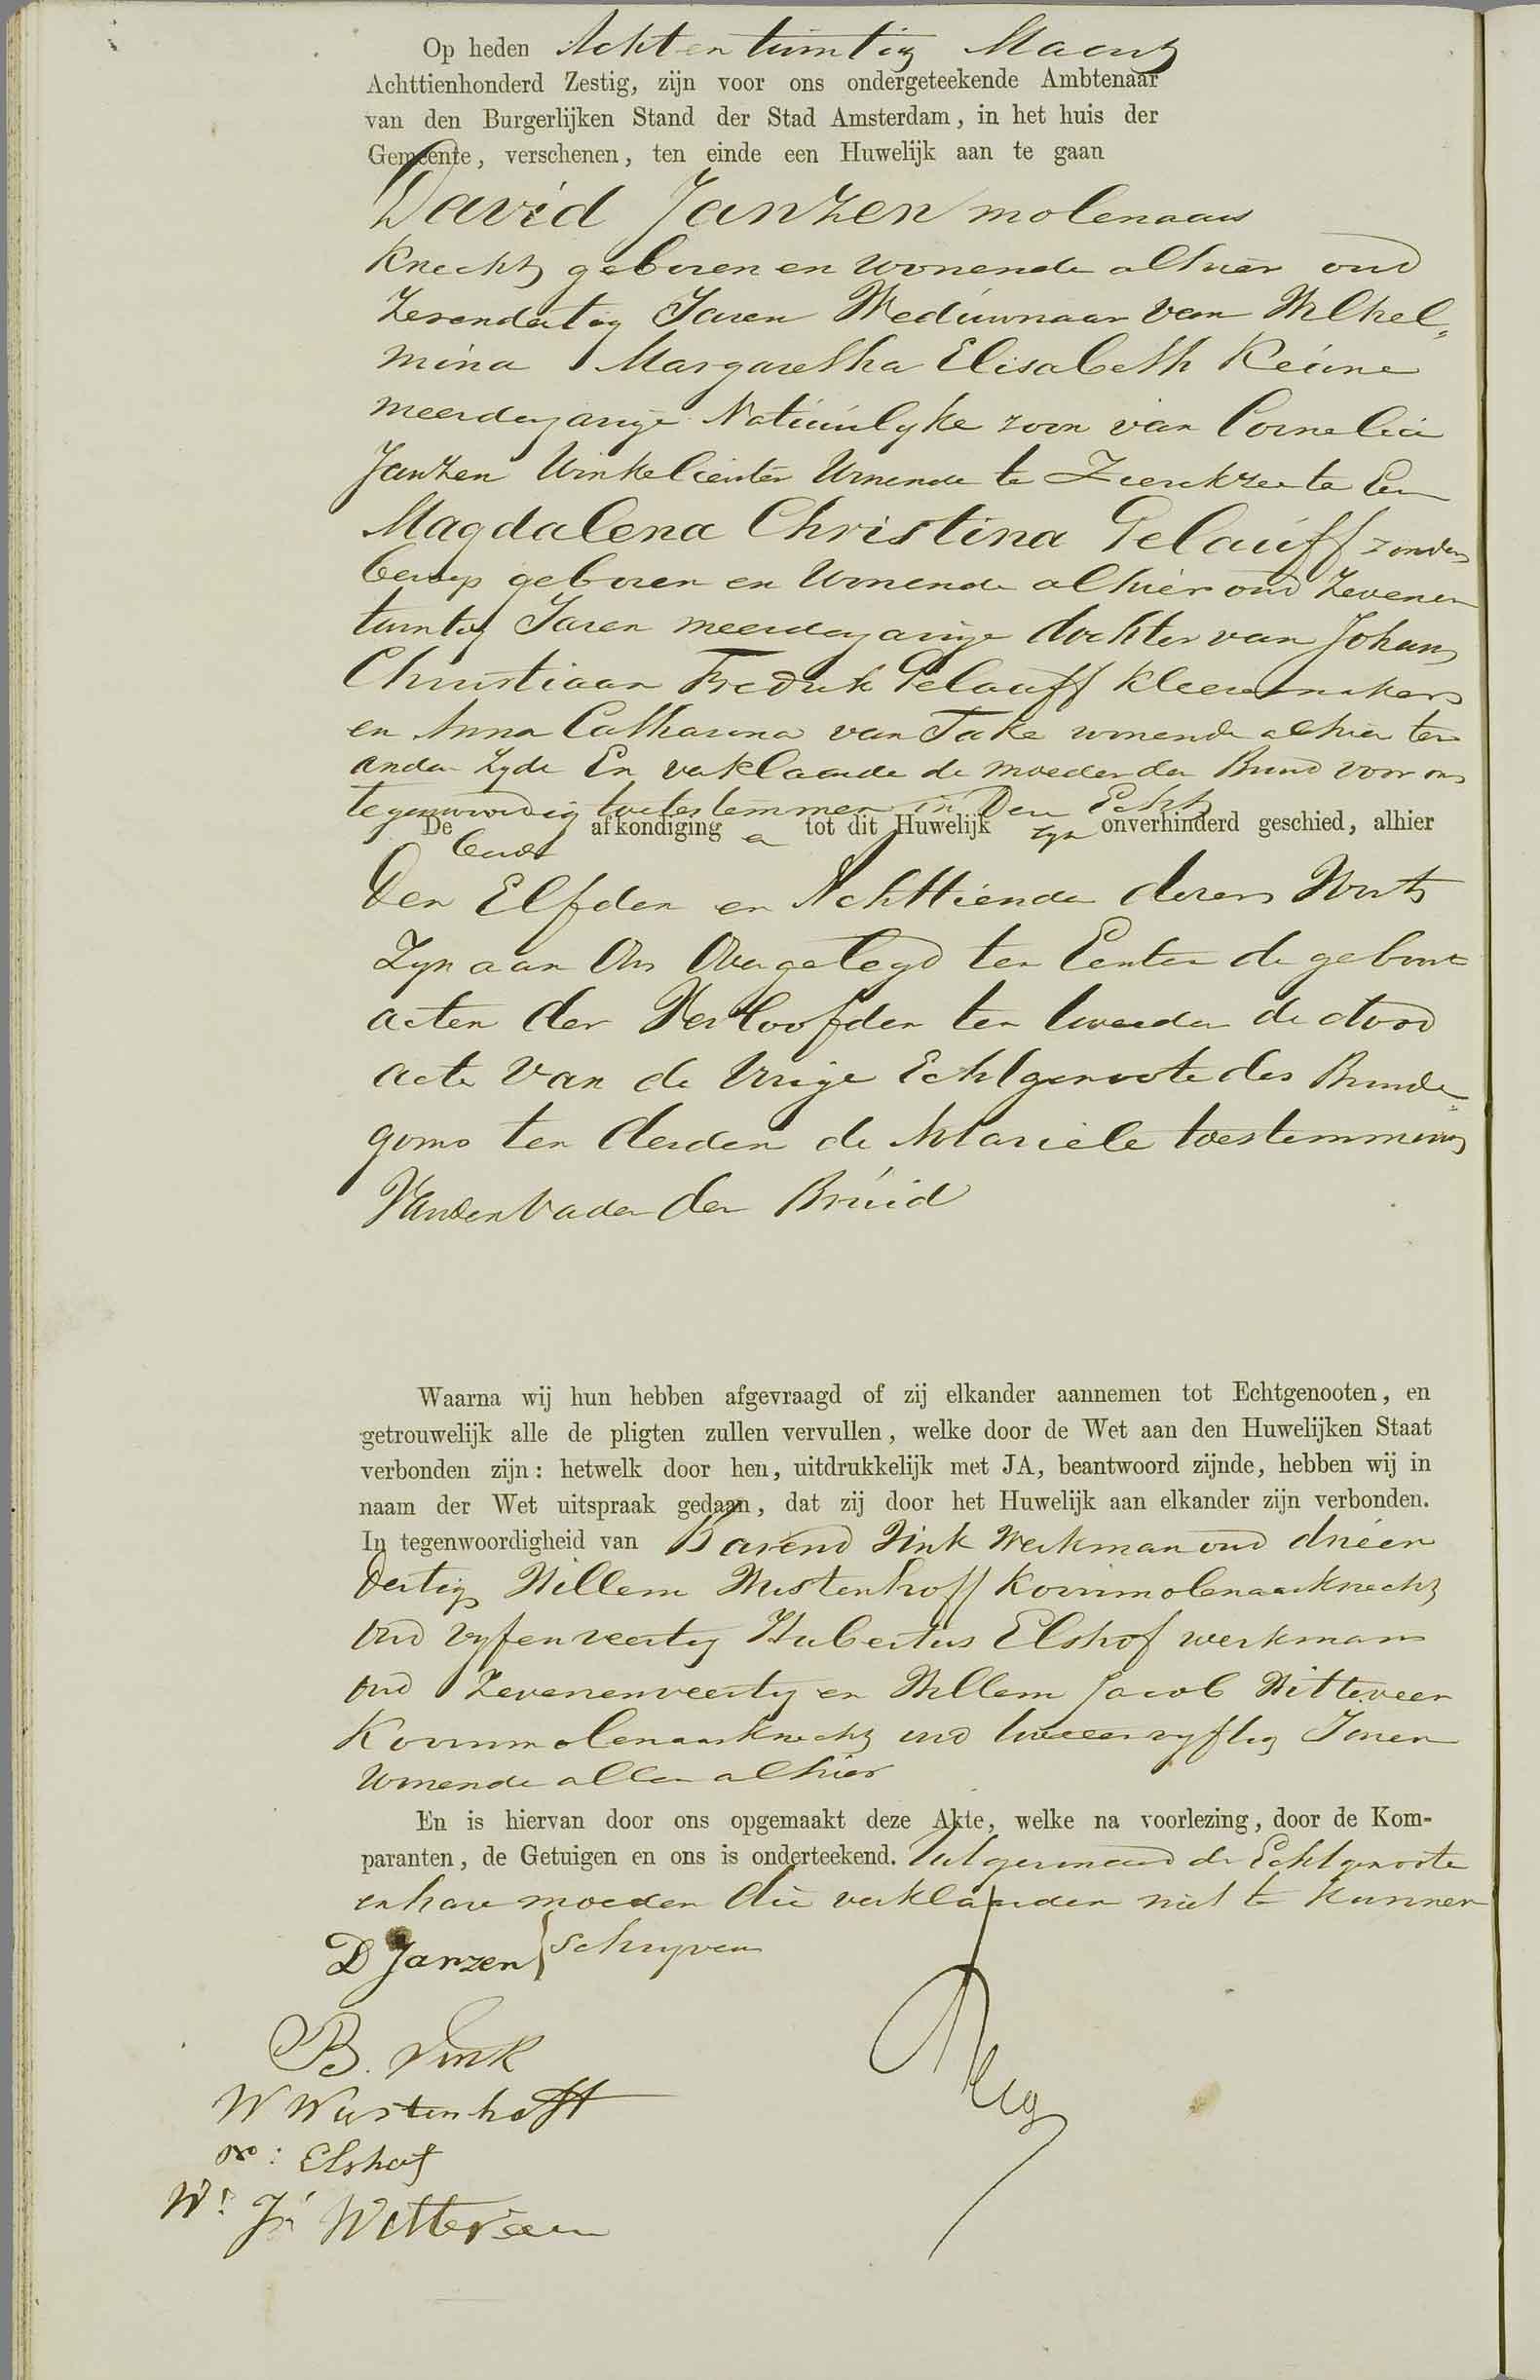 Op heden Acht en twintig Maart
Achttienhonderd Zestig, zijn voor ons ondergeteekende Ambtenaar
van den Burgerlijken Stand der Stad Amsterdam, in het huis der
Gemeente, verschenen, ten einde een Huwelijk aan te gaan
David Janzen molenaars
knecht geboren en wonende alhier oud
Zesendertig Jaren Weduwnaar van Wilhel„
mina Margaretha Elisabeth Keune
meerderjarige Natuurlyke zoon van Cornelia
Janzen Winkelierster Wonende te Zierikzee ter Een
Magdalena Christina Gelauff zonder
beroep geboren en Wonende alhier oud Zevenen
twintig Jaren meerderjarige dochter van Johann
Christiaan Fredrik Gelauff kleermaker
en Anna Catharina van Take wonende alhier ter
andere Zyde En verklaarde de moeder der Bruid voor ons
tegenwoordig toetestemmen in Den Echt
De beide afkondiging en tot dit Huwelijk zyn onverhinderd geschied, alhier
Den Elfden en Achttiende dezer Wordt
Zyn aan Ons Overgelegd ten Eersten de geboorte
acten der Verloofden ten tweeden de dood
acte Van de Vrige Echtgenoote des Bruide„
goms ten derden de Notariele toestemming
Van den Vader der Bruid
Waarna wij hun hebben afgevraagd of zij elkander aannemen tot Echtgenooten, en
getrouwelijk alle de pligten zullen vervullen, welke door de Wet aan den Huwelijken Staat
verbonden zijn: hetwelk door hen, uitdrukkelijk met JA, beantwoord zijnde, hebben wij in
naam der Wet uitspraak gedaan, dat zij door het Huwelijk aan elkander zijn verbonden.
In tegenwoordigheid van Barend Vink Werkman oud drieen
Dertig Willem Wustenhoff Koornmolenaarsknecht
oud vyfenveertig Hubertus Elshof werkman
oud Zevenenveertig en Willem Jacob Witteveen
Koornmolenaarsknecht oud tweeenvyftig Jaren
Wonende allen alhier
En is hiervan door ons opgemaakt deze Akte, welke na voorlezing, door de Kom-
paranten, de Getuigen en ons is onderteekend. Uitgenomen de Echtgenoote
en hare moeder die verklaarden niet te kunnen
D Janzen schryven
B. Vink
W Wustenhoff
Elshof
W: J: Witteveen